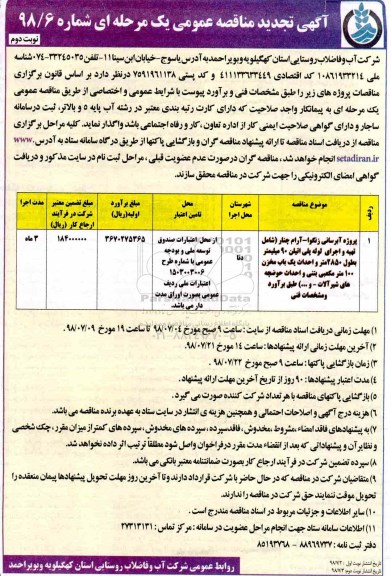 آگهی تجدید مناقصه عمومی یک مرحله ای شماره ۹۸/۶
نوبت دوم
شرکت آب و فاضلاب روستایی استان کهگیلویه و بویراحمد به آدرس یاسوج - خیابان ابن سینا ۱۱ - تلفن ۳۳۲۴۵۰۳۵-۰۷۴ شناسه
ملی ۱۰۸۶۱۹۳۳۲۱۴ کد اقتصادی ۴۱۱۱۳۳۶۳۳۴۴۹ و کد پستی ۷۵۹۱۹۶۱۱۳۸ درنظر دارد بر اساس قانون برگزاری
مناقصات پروژه های زیر را طبق مشخصات فنی و برآورد پیوست با شرایط عمومی و اختصاصی از طریق مناقصه عمومی
یک مرحله ای به پیمانکار واجد صلاحیت که دارای کارت رتبه بندی معتبر در رشته آب پایه ۵ و بالاتر، ثبت درسامانه
ساجار و دارای گواهی صلاحیت ایمنی کار از اداره تعاون ، کار و رفاه اجتماعی باشد واگذار نماید. کلیه مراحل برگزاری
مناقصه از دریافت اسناد مناقصه تا ارائه پیشنهاد مناقصه گران و بازگشایی پاکتها از طریق درگاه سامانه ستاد به آدرس www.
setadiran.ir انجام خواهد شد. مناقصه گران درصورت عدم عضویت قبلی ، مراحل ثبت نام در سایت مذکور و دریافت
گواهی امضای الکترونیکی را جهت شرکت در مناقصه محقق سازند.
ردیف | موضوع مناقصه | شهرستان محل اجرا | محل تامین اعتبار | مبلغ برآورد اولیه (ریال) | مبلغ تضمین معتبر شرکت در فرآیند ارجاع کار (ریال) | مدت اجرا
۱ | پروژه آبرسانی زنگوا-آرام چنار (شامل تهیه و اجرای لوله پلی اتیلن ۹۰ میلیمتر بطول ۲۸۵۰متر و احداث یک باب مخزن ۱۰۰ متر مکعبی بتنی و احداث حوضچه های شیرآلات - و ...) طبق برآورد ومشخصات فنی | دنا | از محل اعتبارات صندوق توسعه ملی و بودجه عمومی با شماره طرح ۱۵۰۳۰۰۳۰۰۶ اعتبارات ملی ردیف عمومی بصورت اوراق مدت دار می باشد. | ۳۶۷۰۲۷۵۳۶۵ | ۱۸۴۰۰۰۰۰۰ | ۳ ماه
۱) مهلت زمانی دریافت اسناد مناقصه از سایت : ساعت ۹ صبح مورخ ۹۸/۰۷/۰۴ تا ساعت ۱۹ مورخ ۹۸/۰۷/۰۹.
۲) آخرین مهلت زمانی ارائه پیشنهادها : ساعت ۱۴ مورخ ۹۸/۰۷/۲۱ .
۳) زمان بازگشایی پاکتها : ساعت ۹ صبح مورخ ۹۸/۰۷/۲۲ .
۴) مدت اعتبار پیشنهادها : ۹۰ روز از تاریخ آخرین مهلت ارائه پیشنهاد.
۵) بازگشایی پاکتهای مناقصه با هر تعداد شرکت کننده صورت می گیرد.
۶) هزینه درج آگهی و اصلاحات احتمالی و همچنین هزینه ی انتشار در سایت ستاد به عهده برنده مناقصه می باشد.
۷) به پیشنهادهای فاقد امضاء ، مشروط ، مخدوش ، فاقد سپرده ، سپرده های مخدوش ، سپرده های کمتر از میزان مقرر ، چک شخصی
و نظایر آن و پیشنهاداتی که بعد از انقضاء مدت مقرر درفراخوان واصل شود مطلقاً ترتیب اثر داده نخواهد شد.
۸) سپرده تضمین شرکت در فرآیند ارجاع کار بصورت ضمانتنامه معتبر بانکی می باشد.
۹) متقاضیان شرکت در مناقصه که در حال حاضر با شرکت قرارداد دارند و تا آخرین روز مهلت تحویل پیشنهادها پیمان منعقده را
تحویل موقت ننمایند حق شرکت در مناقصه را ندارند.
۱۰) سایر اطلاعات و جزئیات مربوط در اسناد مناقصه مندرج است.
۱۱) اطلاعات سامانه ستاد جهت انجام مراحل عضویت در سامانه : مرکز تماس : ۲۷۳۱۳۱۳۱
دفتر ثبت نامه : ۸۸۹۶۹۷۳۷ - ۸۵۱۹۳۷۶۸
تاریخ انتشار نوبت اول : ۹۸/۷/۲
تاریخ انتشار نوبت دوم ۹۸/۷/۳
روابط عمومی شرکت آب و فاضلاب روستایی استان کهگیلویه و بویراحمد